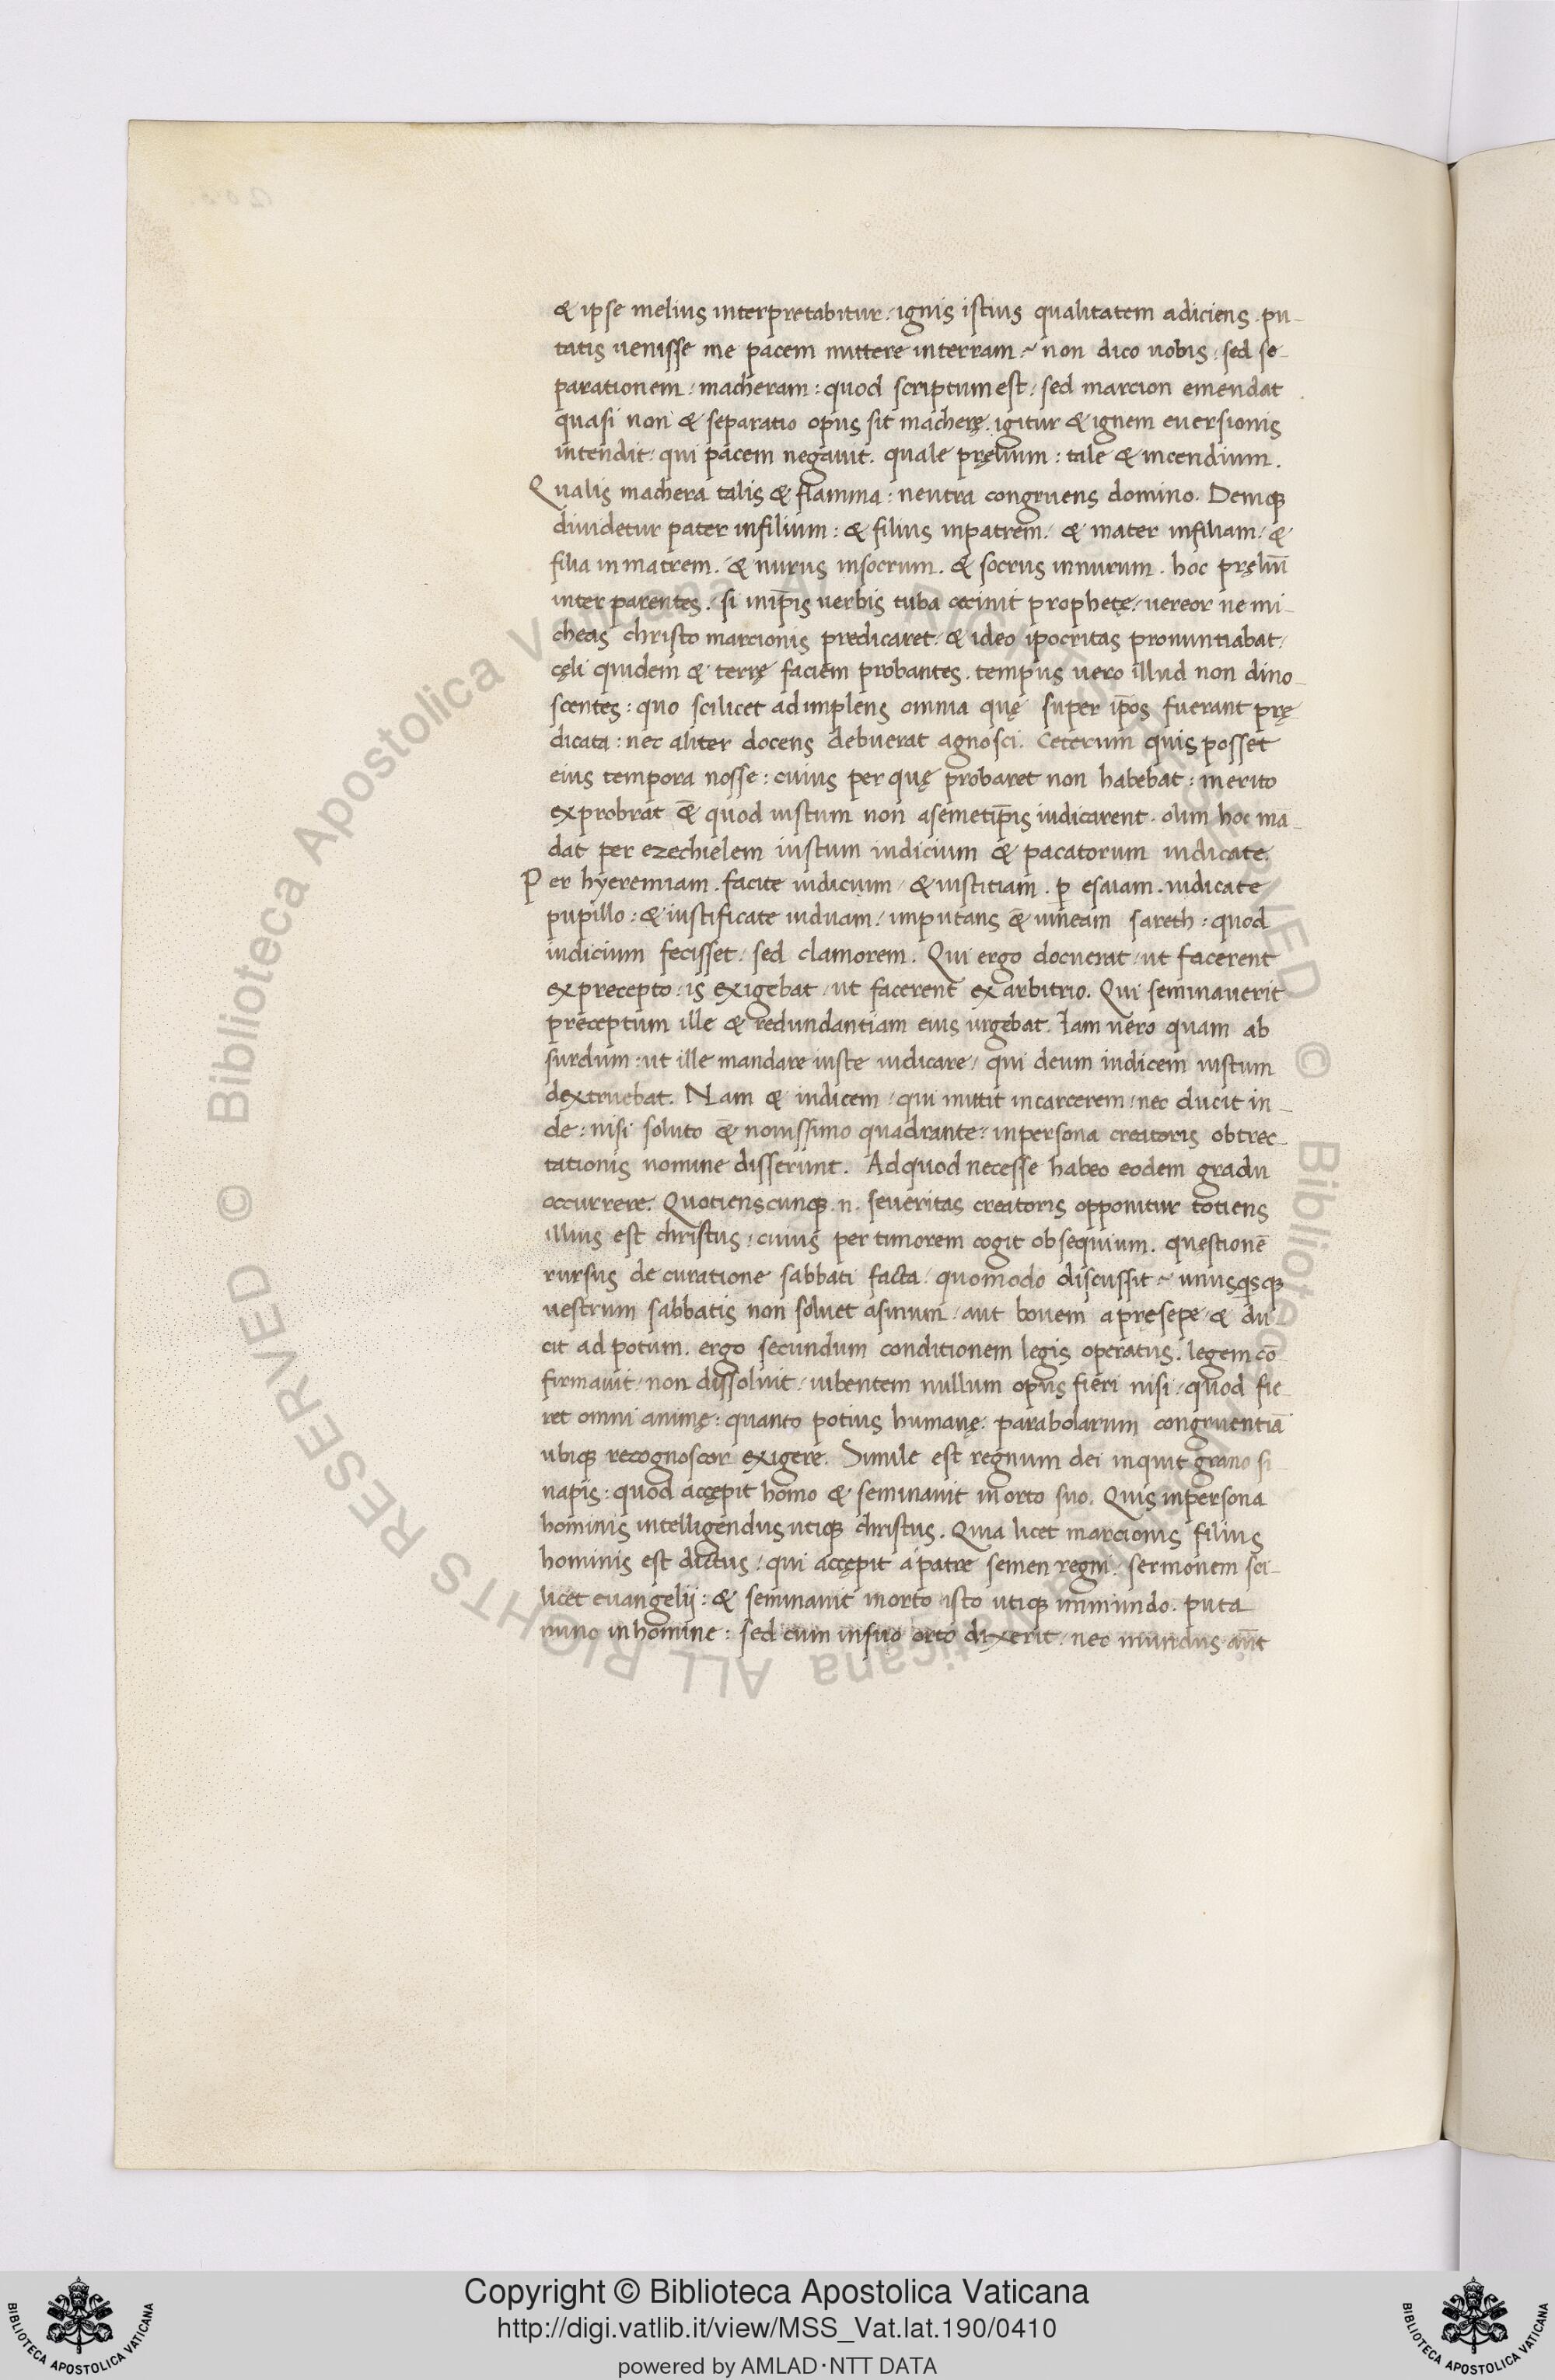 & ipse melius interpretabitur. ignis istius qualitatem adiciens. pu-
tatis uenisse me pacem mittere interram? non dico uobis. sed se-
parationem. macheram: quod scriptum est. sed marcion emendat
quasi non & separatio opus sit macherę. igitur & ignem euersionis
intendit. qui pacem negauit. quale pręlium: tale & incendium.
Qualis machera talis & flamma: neutra congruens domino. Deniqꝫ
diuidetur pater infilium: & filius inpatrem. & mater infiliam. &
filia in matrem. & nurus insocrum. & socrus innurum. hoc pręliū
inter parentes. si inip̄is uerbis tuba cecinit prophetę. uereor ne mi-
cheas christo marcionis predicaret. & ideo ipocritas pronuntiabat.
cęli quidem & terrę faciem probantes. tempus uero illud non dino-
scentes: quo scilicet adimplens omnia quę super ip̄os fuerant prę
dicata: nec aliter docens debuerat agnosci. Ceterum quis posset
eius tempora nosse: cuius per quę probaret non habebat: merito
exprobrat &̄ quod iustum non asemetip̄is iudicarent. olim hoc mā-
dat per ezechielem iustum iudicium & pacatorum iudicate.
Per hyeremiam. facite iudicium. & iustitiam. ꝑ esaiam. iudicate
pupillo: & iustificate uiduam. imputans &̄ uineam sareth: quod
iudicium fecisset. sed clamorem. Qui ergo docuerat. ut facerent
ex precepto. is exigebat. ut facerent ex arbitrio. Qui seminauerit
preceptum ille & redundantiam eius urgebat. Iam uero quam ab
surdum: ut ille mandare iuste iudicare. qui deum iudicem iustum
dextruebat. Nam & iudicem. qui mittit incarcerem. nec ducit in-
de: nisi soluto &̄ nouissimo quadrante: inpersona creatoris obtrec-
tationis nomine disserunt. Adquod necesse habeo eodem gradu
occurrere. Quotienscunqꝫ .n. seueritas creatoris opponitur totiens
illius est christus. cuius per timorem cogit obsequium. questionē
rursus de curatione sabbati facta. quomodo discussit? unusqsqꝫ
uestrum sabbatis non soluet asinum. aut bouem apręsepe. & du
cit ad potum. ergo secundum conditionem legis operatus. legem cō-
firmauit. non dissoluit. iubentem nullum opus fieri nisi. quod fie-
ret omni animę: quanto potius humanę. parabolarum congruentiā
ubiqꝫ recognoscor exigere. Simile est regnum dei inquit grano si-
napis: quod accępit homo & seminauit inorto suo. Quis inpersona
hominis intelligendus utiqꝫ christus. Quia licet marcionis filius
hominis est dictus. qui accępit a patre semen regni. sermonem sci-
licet euangelij: & seminauit inorto isto utiqꝫ inmundo. puta
nunc inhomine: sed cum insuo orto dixerit. nec mundus aūt
Copyright © Biblioteca Apostolica Vaticana
http://digi.vatlib.it/view/MSS_Vat.lat.190/0410
powered by AMLAD·NTT DATA
BIBLIOTECA APOSTOLICA VATICANA
BIBLIOTECA APOSTOLICA VATICANA
© Biblioteca Apostolica Vaticana ALL RIGHTS RESERVED © Biblioteca Apostolica Vaticana ALL RIGHTS RESERVED